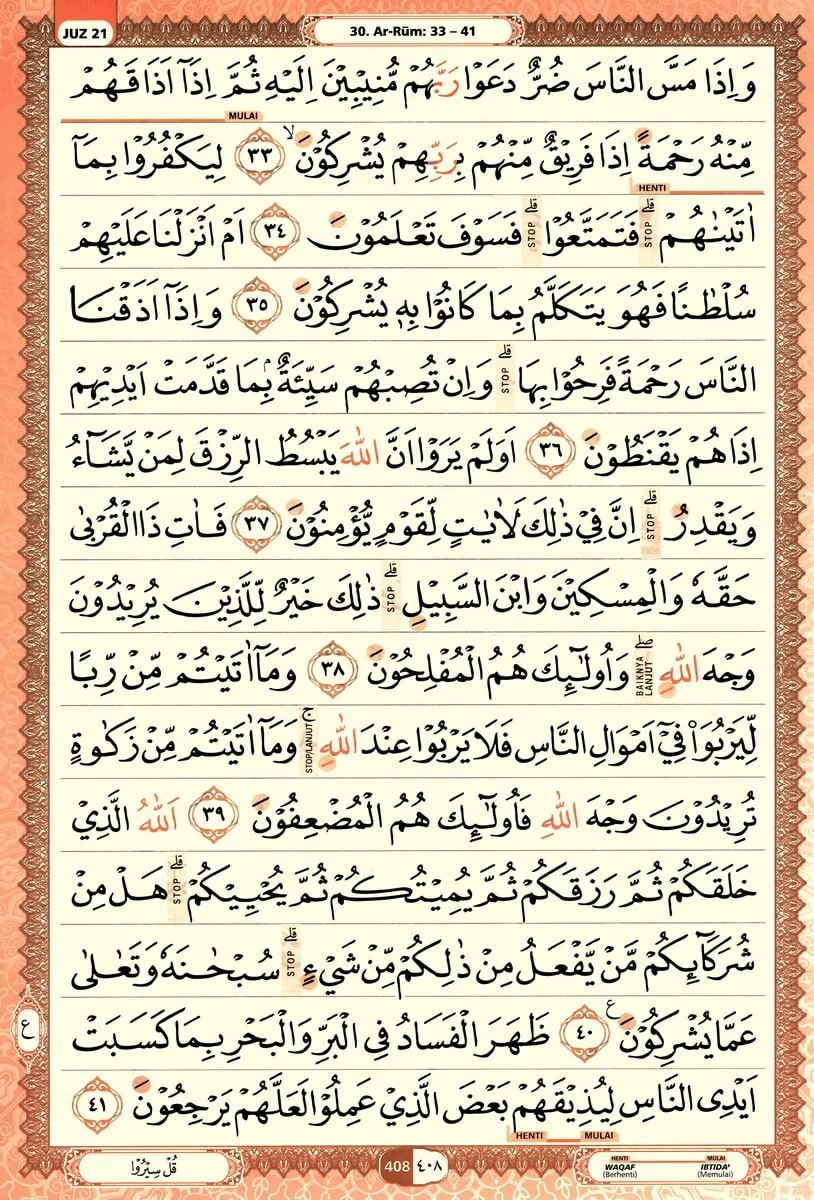 JUZ 21
30. Ar-Rūm: 33 – 41
وَاِذَا مَسَّ النَّاسَ ضُرٌّ دَعَوْا رَبَّهُمْ مُّنِيْبِيْنَ اِلَيْهِ ثُمَّ اِذَآ اَذَاقَهُمْ
MULAI
مِّنْهُ رَحْمَةً اِذَا فَرِيْقٌ مِّنْهُمْ بِرَبِّهِمْ يُشْرِكُوْنَۙ ٣٣ لِيَكْفُرُوْا بِمَآ
HENTI
اٰتَيْنٰهُمْۗ STOP فَتَمَتَّعُوْاۗ STOP فَسَوْفَ تَعْلَمُوْنَ ٣٤ اَمْ اَنْزَلْنَا عَلَيْهِمْ
سُلْطٰنًا فَهُوَ يَتَكَلَّمُ بِمَا كَانُوْا بِهٖ يُشْرِكُوْنَ ٣٥ وَاِذَآ اَذَقْنَا
النَّاسَ رَحْمَةً فَرِحُوْا بِهَاۗ STOP وَاِنْ تُصِبْهُمْ سَيِّئَةٌ ۢبِمَا قَدَّمَتْ اَيْدِيْهِمْ
اِذَا هُمْ يَقْنَطُوْنَ ٣٦ اَوَلَمْ يَرَوْا اَنَّ اللّٰهَ يَبْسُطُ الرِّزْقَ لِمَنْ يَّشَاۤءُ
وَيَقْدِرُۗ STOP اِنَّ فِيْ ذٰلِكَ لَاٰيٰتٍ لِّقَوْمٍ يُّؤْمِنُوْنَ ٣٧ فَاٰتِ ذَا الْقُرْبٰى
حَقَّهٗ وَالْمِسْكِيْنَ وَابْنَ السَّبِيْلِۗ STOP ذٰلِكَ خَيْرٌ لِّلَّذِيْنَ يُرِيْدُوْنَ
وَجْهَ اللّٰهِۖ BAIKNYA LANJUT وَاُولٰۤىِٕكَ هُمُ الْمُفْلِحُوْنَ ٣٨ وَمَآ اٰتَيْتُمْ مِّنْ رِّبًا
لِّيَرْبُوَا۠ فِيْٓ اَمْوَالِ النَّاسِ فَلَا يَرْبُوْا عِنْدَ اللّٰهِۚ STOP/LANJUT وَمَآ اٰتَيْتُمْ مِّنْ زَكٰوةٍ
تُرِيْدُوْنَ وَجْهَ اللّٰهِ فَاُولٰۤىِٕكَ هُمُ الْمُضْعِفُوْنَ ٣٩ اَللّٰهُ الَّذِيْ
خَلَقَكُمْ ثُمَّ رَزَقَكُمْ ثُمَّ يُمِيْتُكُمْ ثُمَّ يُحْيِيْكُمْۗ STOP هَلْ مِنْ
شُرَكَاۤىِٕكُمْ مَّنْ يَّفْعَلُ مِنْ ذٰلِكُمْ مِّنْ شَيْءٍۗ STOP سُبْحٰنَهٗ وَتَعٰلٰى
عَمَّا يُشْرِكُوْنَ ࣖ ٤٠ ظَهَرَ الْفَسَادُ فِى الْبَرِّ وَالْبَحْرِ بِمَا كَسَبَتْ
ع
اَيْدِى النَّاسِ لِيُذِيْقَهُمْ بَعْضَ الَّذِيْ عَمِلُوْا لَعَلَّهُمْ يَرْجِعُوْنَ ٤١
HENTI MULAI
قُلْ سِيْرُوْا
408 ٤٠٨
HENTI WAQAF (Berhenti)
MULAI IBTIDA' (Memulai)